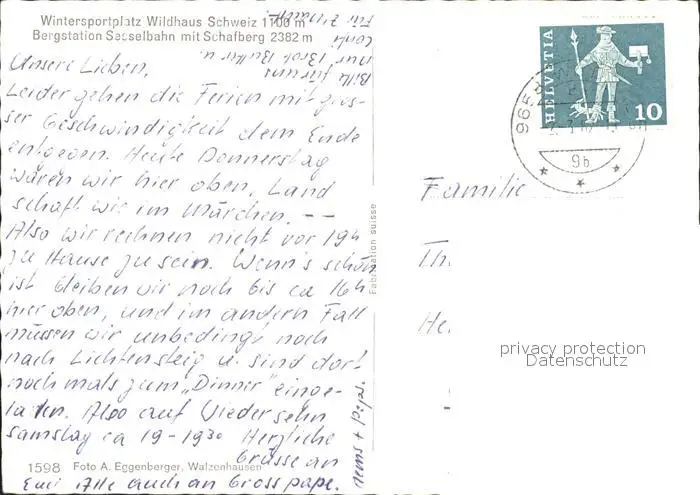 Wintersportplatz Wildhaus Schweiz 1100 m
Bergstation Sesselbahn mit Schafberg 2382 m
Bitte für uns
nur Brot Butter u.
für
Unsere Lieben,
Leider gehen die Ferien mit gros-
ser Geschwindigkeit dem Ende
entgegen. Heute Donnerstag
waren wir hier oben, Land
schaft wie im Märchen. --
Also wir rechnen nicht vor 19h
zu Hause zu sein. Wenn's schön
ist bleiben wir noch bis ca 16h
hier oben, und im andern Fall
müssen wir unbedingt noch
nach Lichtensteig u. sind dort
noch mals zum „Dinner" einge-
laden. Also auf Wiedersehn
Samstag ca 19-1930 Herzliche
Grüsse an
Eui Alle auch an Grosspape.
1598 Foto A. Eggenberger, Walzenhausen
Fabrikation suisse
HELVETIA
10
9658
9b
Familie
Th.
He.
privacy protection
Datenschutz